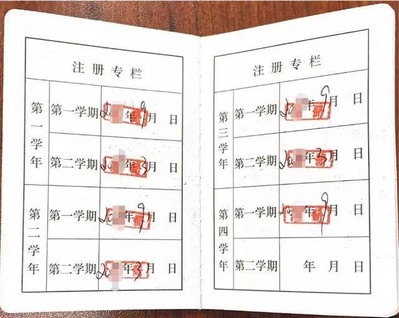 注册专栏
第一学年
第一学期 2 年9月 日
第二学期 2 年3月 日
第二学年
第一学期 2 年9月 日
第二学期 2 年3月 日
注册专栏
第三学年
第一学期 2 年9月 日
第二学期 2 年3月 日
第四学年
第一学期 2 年9月 日
第二学期 年 月 日